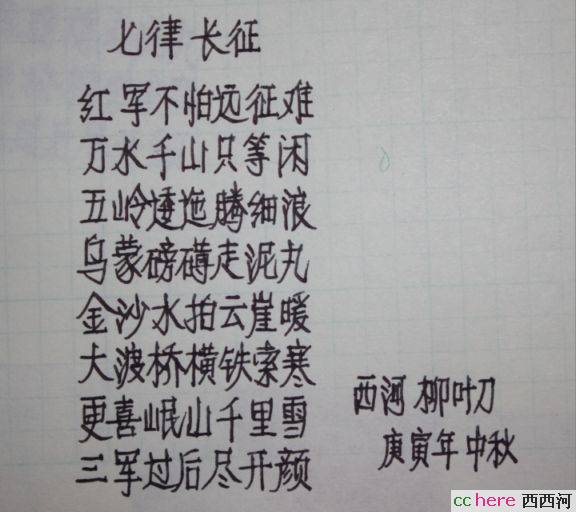 七律 长征
红军不怕远征难
万水千山只等闲
五岭迤腾细浪
乌蒙磅礴走泥丸
金沙水拍云崖暖
大波桥横铁索寒
更喜岷山千里雪
三军过后尽开颜
西河 柳叶刀
庚寅年中秋
cchere 西西河